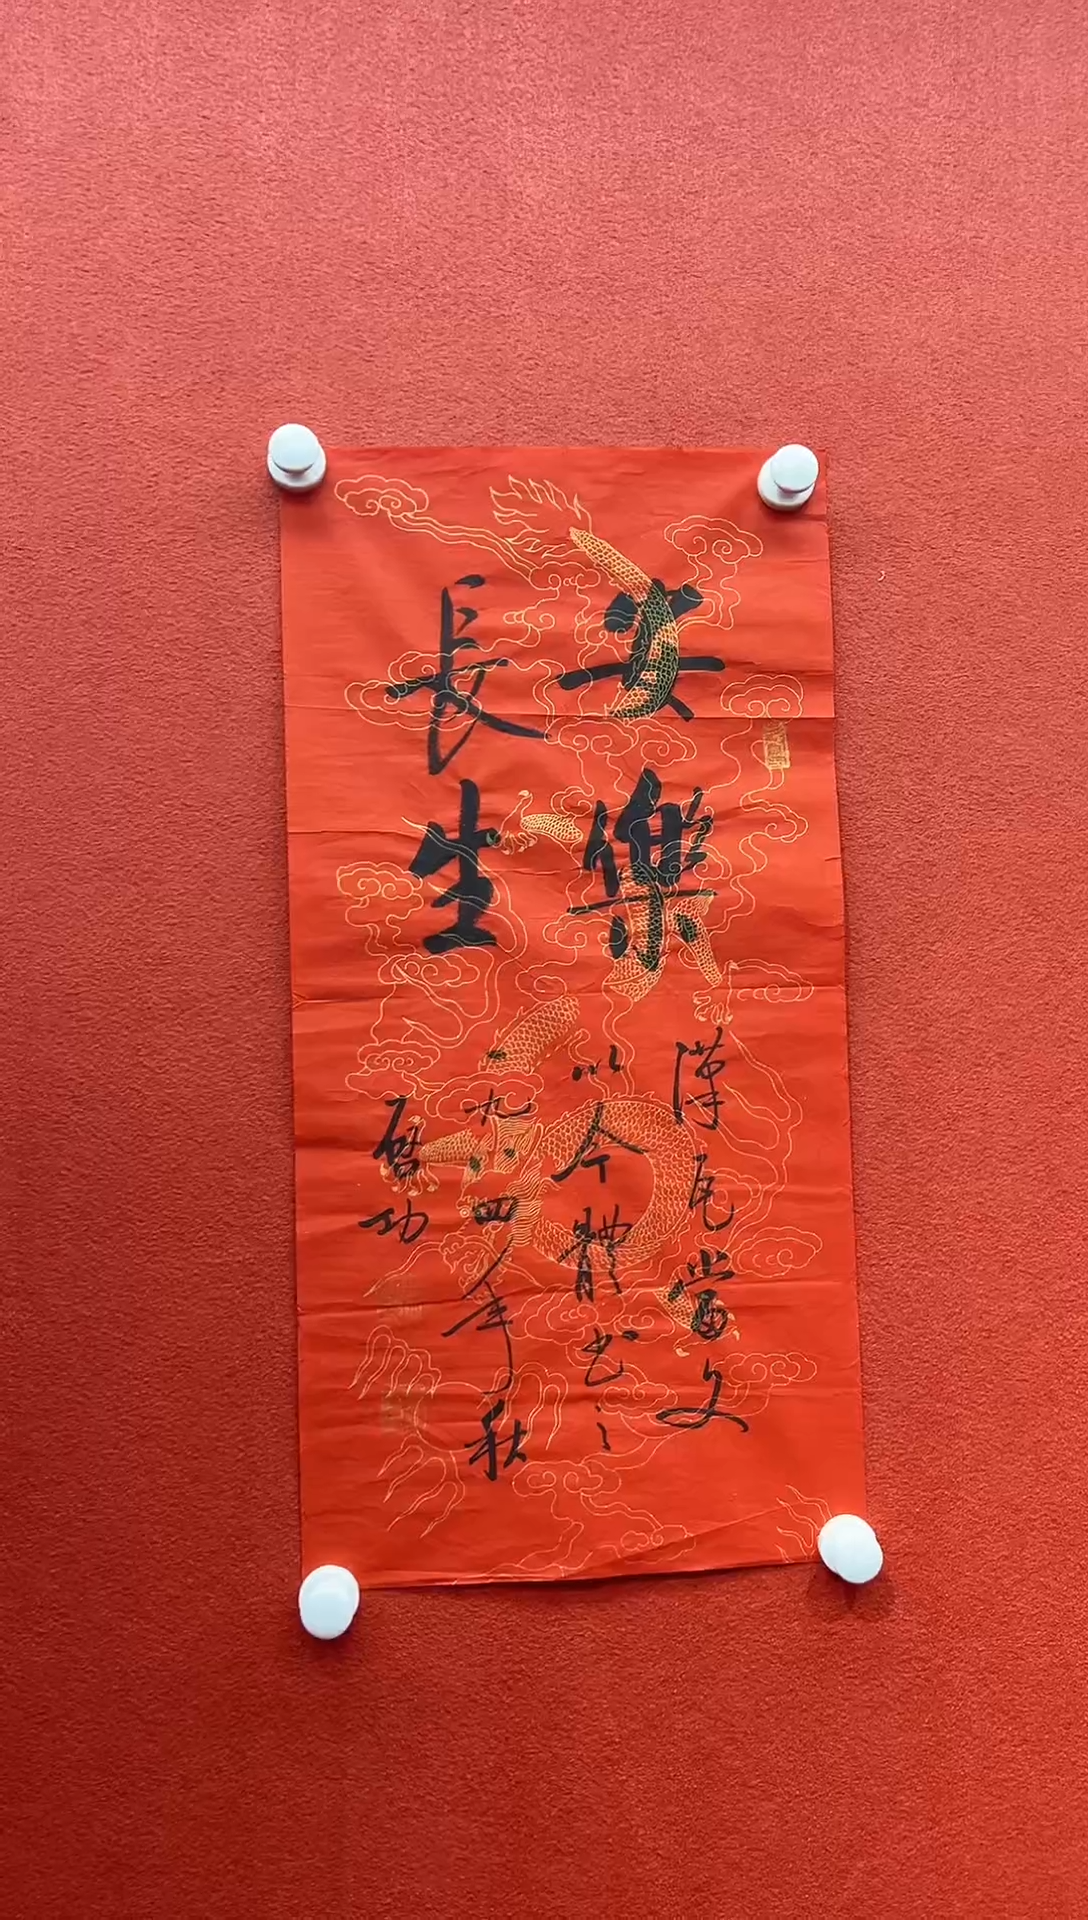 安樂
長生
漢瓦當文
以今體書之
一九八四年秋
啓功